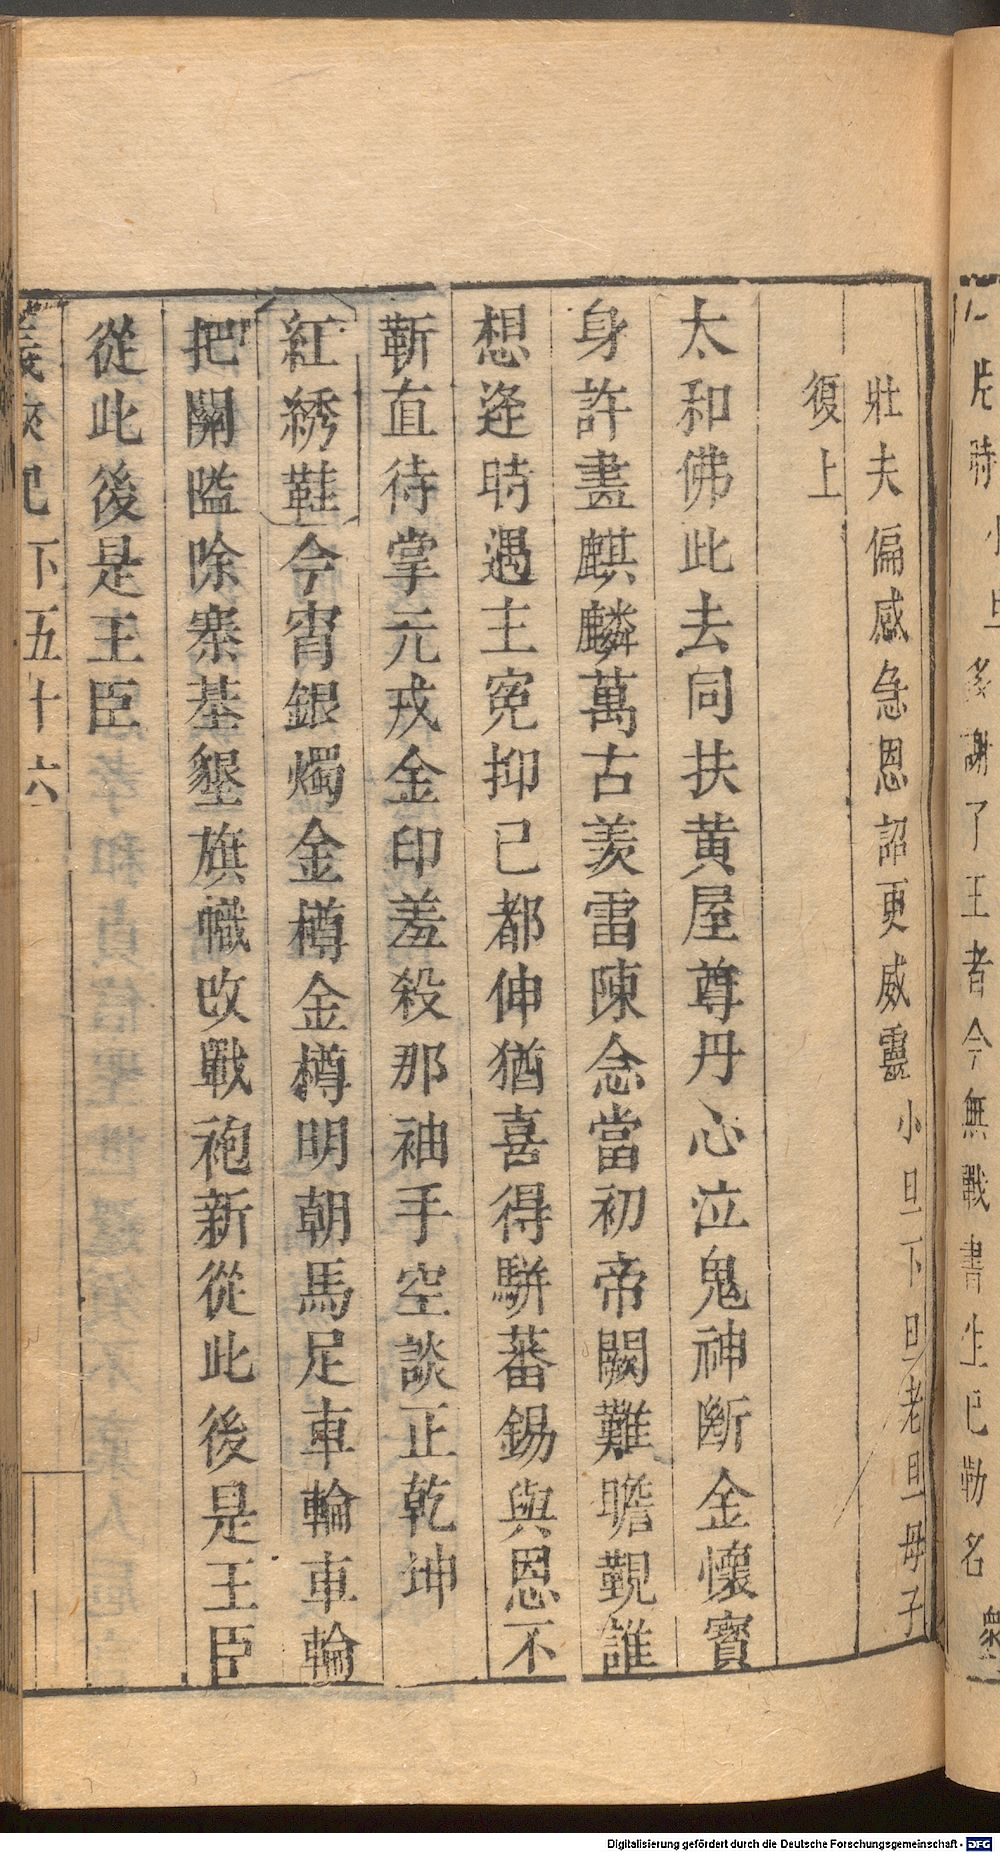 時小旦多謝了王者今無戰書生已勒名衆
壯夫偏感急恩詔更威靈小旦下旦老旦母子
復上
太和佛此去同扶黄屋尊丹心泣鬼神斷金懷寳
身許畫麒麟萬古羨雷陳念當初帝闕難瞻覲誰
想逢時遇主冤抑已都伸猶喜得駢蕃錫與恩不
靳直待掌元戎金印羞殺那袖手空談正乾坤
紅綉鞋今宵銀燭金樽金樽明朝馬足車輪車輪
把關隘除寨基墾旗幟改戰袍新從此後是王臣
從此後是王臣
義俠記下五十六
Digitalisierung gefördert durch die Deutsche Forschungsgemeinschaft - DFG